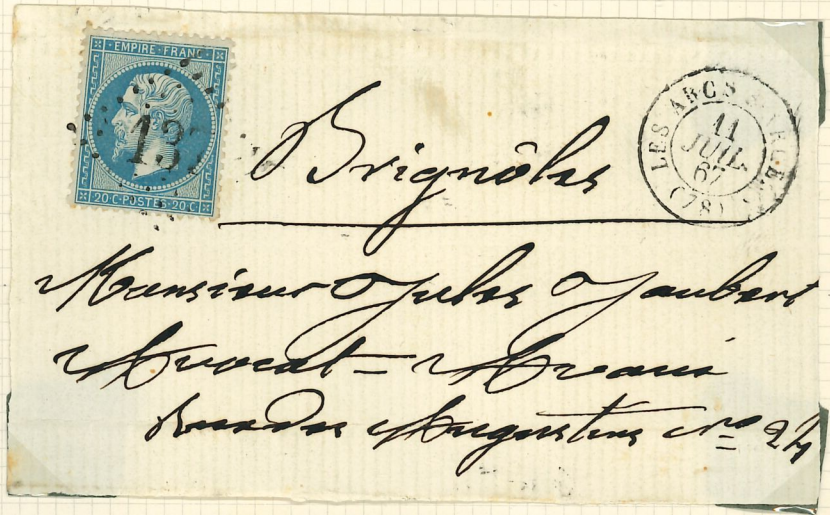 EMPIRE FRANC
20 C POSTES 20 C
13
LES ARCS
11
JUIL.
67
(78)
Brignôles
Monsieur Jules Jaubert
Avocat = Avoué
Rue des Augustins No 24